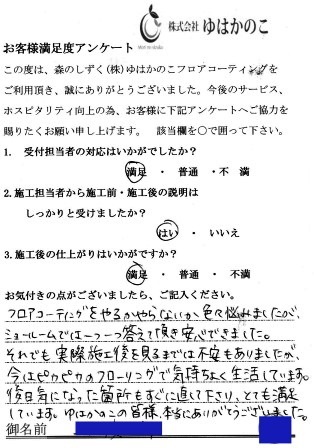 株式会社 ゆはかのこ
お客様満足度アンケート
この度は、森のしずく(株)ゆはかのこフロアコーティングを
ご利用頂き、誠にありがとうございました。今後のサービス、
ホスピタリティ向上の為、お客様に下記アンケートへご協力を
賜りたくお願い申し上げます。 該当欄を〇で囲って下さい。
1. 受付担当者の対応はいかがでしたか?
満足 ・ 普通 ・ 不 満
2.施工担当者から施工前・施工後の説明は
しっかりと受けましたか?
はい ・ いいえ
3.施工後の仕上がりはいかがですか?
満足 ・ 普通 ・ 不満
お気付きの点がございましたら、ご記入ください。
フロアコーティングをやるかやらないか、色々悩みましたが、
ショールームでは一つ一つ答えて頂き安心できました。
それでも実際施工後を見るまでは不安もありましたが、
今はピカピカのフローリングで気持ちよく生活しています。
後日気になった箇所もすぐに直して下さり、とても満足
しています。ゆはかのこの皆様、本当にありがとうございました。
御名前